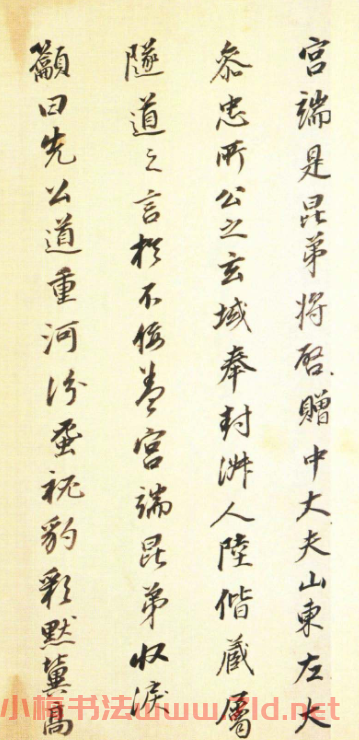 宮端是昆弟將啓贈中大夫山東左大
叅忠所公之玄域奉封淑人陸偕藏屬
隧道之言於不佞盖宮端昆弟収淚
籲曰先公道重河汾蚤豹彩默冀高
书法www.net